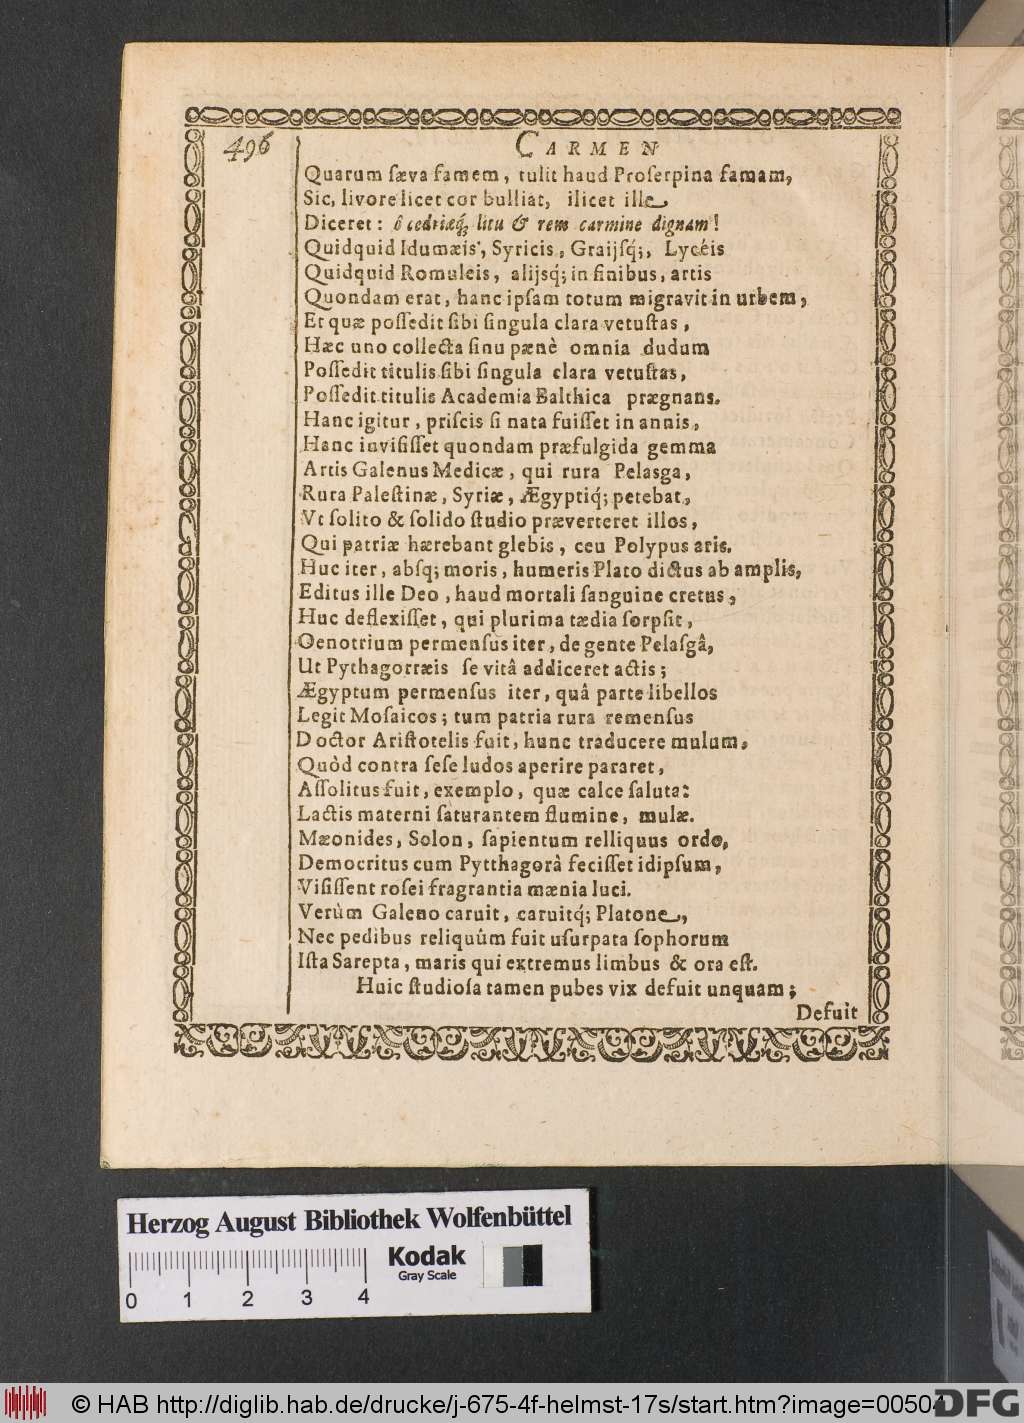 496
CARMEN
Quarum ſæva famem, tulit haud Proſerpina famam,
Sic, livore licet cor bulliat, ilicet ille
Diceret: ô cedriæq́; litu & rem carmine dignam!
Quidquid Idumæis, Syricis, Graijſq́;, Lycéis
Quidquid Romuleis, alijsq́; in finibus, artis
Quondam erat, hanc ipſam totum migravit in urbem,
Et quæ poſſedit ſibi ſingula clara vetuſtas,
Hæc uno collecta ſinu pænè omnia dudum
Poſſedit titulis ſibi ſingula clara vetuſtas,
Poſſedit titulis Academia Balthica prægnans.
Hanc igitur, priſcis ſi nata fuiſſet in annis,
Hanc inviſiſſet quondam præfulgida gemma
Artis Galenus Medicæ, qui rura Pelasga,
Rura Paleſtinæ, Syriæ, Ægyptiq́; petebat,
Vt ſolito & ſolido ſtudio præverteret illos,
Qui patriæ hærebant glebis, ceu Polypus aris.
Huc iter, abſq́; moris, humeris Plato dictus ab amplis,
Editus ille Deo, haud mortali ſanguine cretus,
Huc deflexiſſet, qui plurima tædia ſorpſit,
Oenotrium permenſus iter, de gente Pelaſgâ,
Ut Pythagorræis ſe vitâ addiceret actis;
Ægyptum permenſus iter, quâ parte libellos
Legit Moſaicos; tum patria rura remenſus
Doctor Ariſtotelis fuit, hunc traducere mulum,
Quòd contra ſeſe ludos aperire pararet,
Aſſolitus fuit, exemplo, quæ calce ſalutat
Lactis materni ſaturantem flumine, mulæ.
Mæonides, Solon, ſapientum relliquus ordo,
Democritus cum Pytthagorâ feciſſet idipſum,
Viſiſſent roſei fragrantia mænia luci.
Verùm Galeno caruit, caruitq́; Platone,
Nec pedibus reliquûm fuit uſurpata ſophorum
Iſta Sarepta, maris qui extremus limbus & ora eſt.
Huic ſtudioſa tamen pubes vix defuit unquam;
Defuit
Herzog August Bibliothek Wolfenbüttel
Kodak
Gray Scale
0 1 2 3 4
© HAB http://diglib.hab.de/drucke/j-675-4f-helmst-17s/start.htm?image=00504
DFG